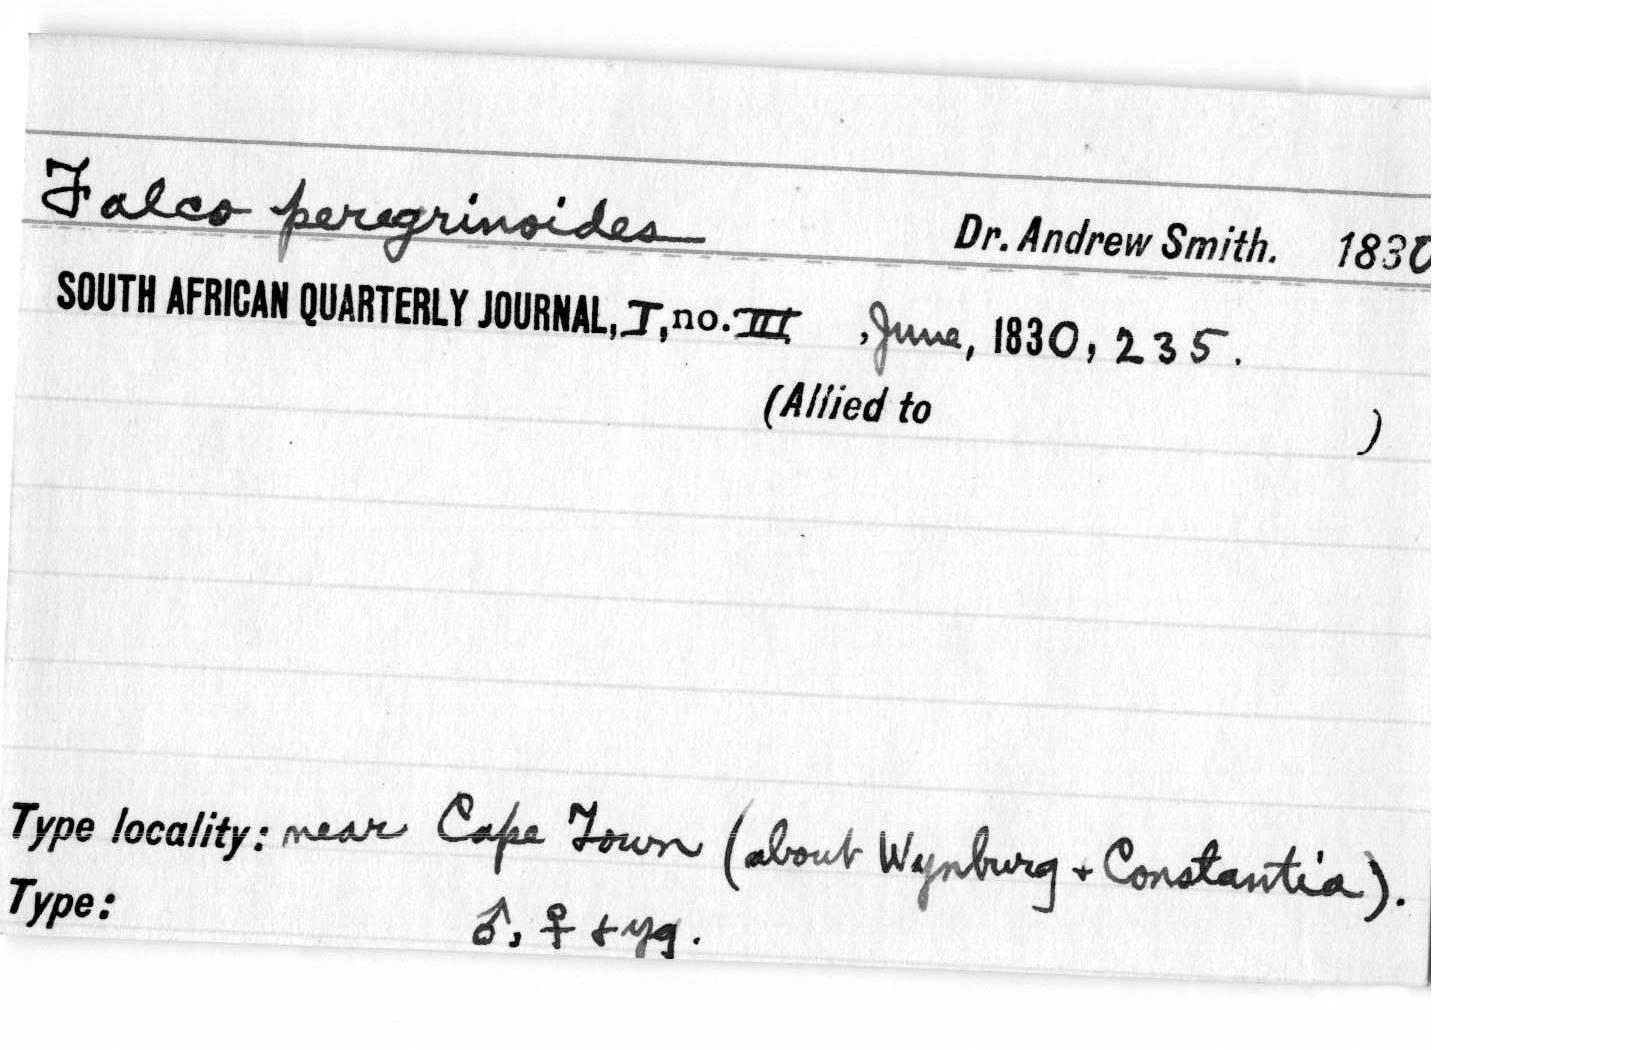 Falco peregrinoides Dr. Andrew Smith. 1830
SOUTH AFRICAN QUARTERLY JOURNAL, I, no. III , June, 1830, 235.
(Allied to )
Type locality: near Cape Town (about Wynburg + Constantia).
Type: ♂, ♀ + yg.